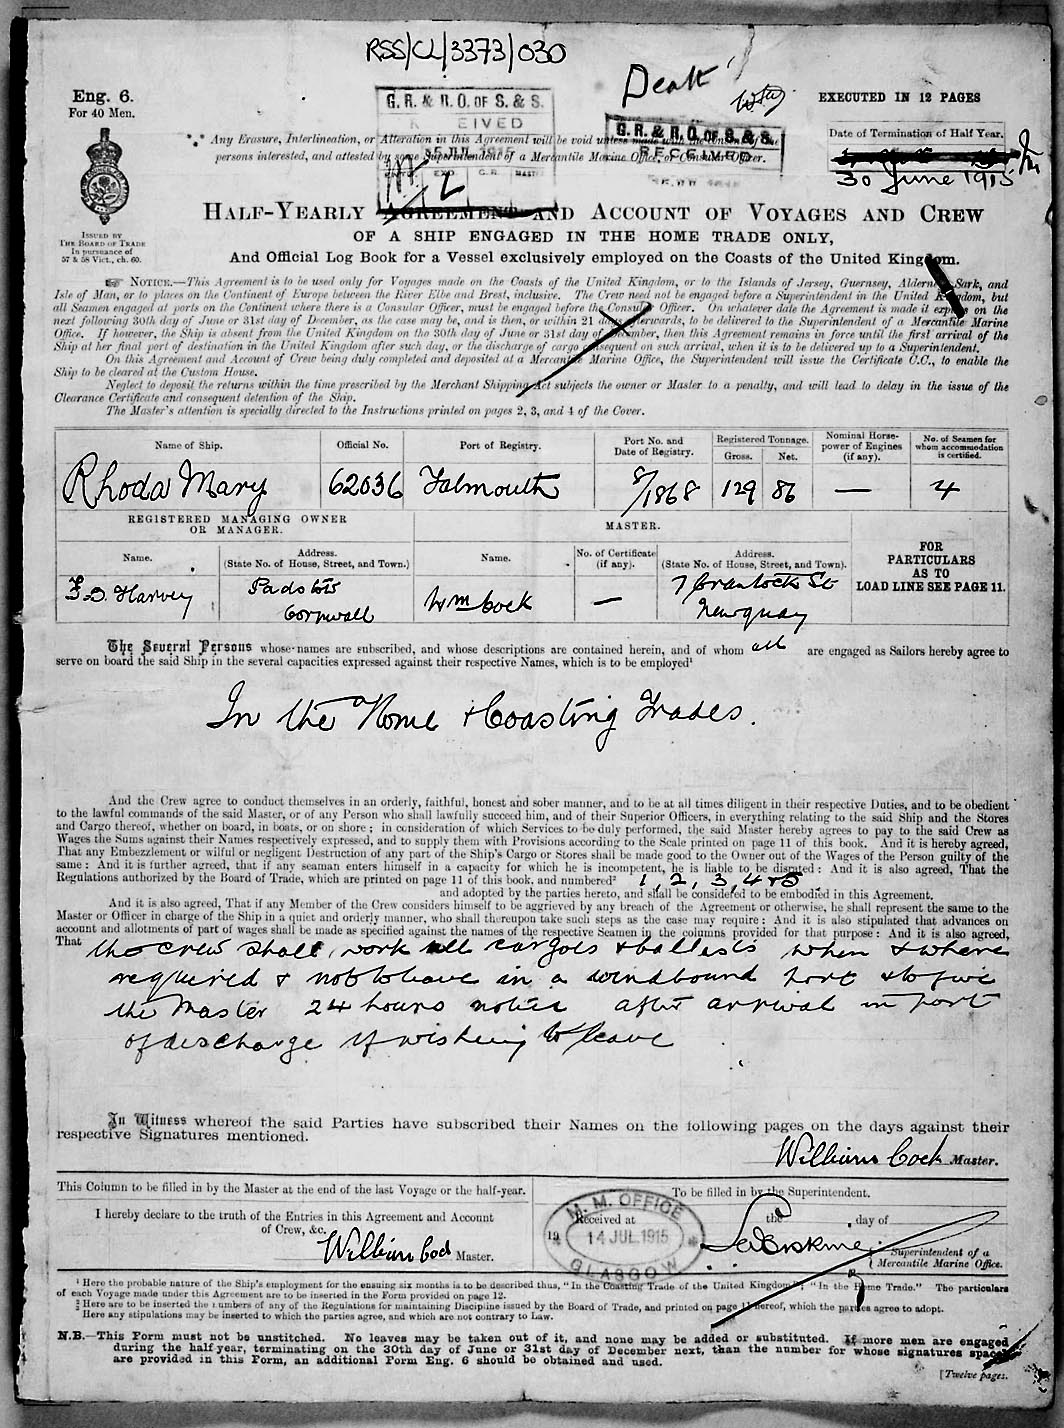 RSS/CL/3373/030
Eng. 6.
For 40 Men.
G. R. & R. O. OF S. & S.
EIVED
15 JUL 1915
Death
G. R. & R. O. OF S. & S.
RECEIVED
EXECUTED IN 12 PAGES
Date of Termination of Half Year.
30 June 1915
Any Erasure, Interlineation, or Alteration in this Agreement will be void unless made with the consent of the
persons interested, and attested by some Superintendent of a Mercantile Marine Office, or Consular Officer.
ISSUED BY
THE BOARD OF TRADE
In pursuance of
57 & 58 Vict., ch. 60.
HALF-YEARLY AGREEMENT AND ACCOUNT OF VOYAGES AND CREW
OF A SHIP ENGAGED IN THE HOME TRADE ONLY,
And Official Log Book for a Vessel exclusively employed on the Coasts of the United Kingdom.
NOTICE.—This Agreement is to be used only for Voyages made on the Coasts of the United Kingdom, or to the Islands of Jersey, Guernsey, Alderney, Sark, and
Isle of Man, or to places on the Continent of Europe between the River Elbe and Brest, inclusive. The Crew need not be engaged before a Superintendent in the United Kingdom, but
all Seamen engaged at ports on the Continent where there is a Consular Officer, must be engaged before the Consular Officer. On whatever date the Agreement is made it expires on the
next following 30th day of June or 31st day of December, as the case may be, and is then, or within 21 days afterwards, to be delivered to the Superintendent of a Mercantile Marine
Office. If however, the Ship is absent from the United Kingdom on the 30th day of June or 31st day of December, then this Agreement remains in force until the first arrival of the
Ship at her final port of destination in the United Kingdom after such day, or the discharge of cargo consequent on such arrival, when it is to be delivered up to a Superintendent.
On this Agreement and Account of Crew being duly completed and deposited at a Mercantile Marine Office, the Superintendent will issue the Certificate C.C., to enable the
Ship to be cleared at the Custom House.
Neglect to deposit the returns within the time prescribed by the Merchant Shipping Act subjects the owner or Master to a penalty, and will lead to delay in the issue of the
Clearance Certificate and consequent detention of the Ship.
The Master's attention is specially directed to the Instructions printed on pages 2, 3, and 4 of the Cover.
Name of Ship. Official No. Port of Registry. Port No. and Date of Registry. Registered Tonnage. Gross. Net. Nominal Horse-power of Engines (if any). No. of Seamen for whom accommodation is certified.
Rhoda Mary 62036 Falmouth 8/1868 129 86 — 4
REGISTERED MANAGING OWNER OR MANAGER.
MASTER.
Name. Address. (State No. of House, Street, and Town.) Name. No. of Certificate (if any). Address. (State No. of House, Street, and Town).
FOR PARTICULARS AS TO LOAD LINE SEE PAGE 11.
F. D. Harvey Padstow Cornwall Wm Cock — 7 Crantock St Newquay
The Several Persons whose names are subscribed, and whose descriptions are contained herein, and of whom all are engaged as Sailors hereby agree to
serve on board the said Ship in the several capacities expressed against their respective Names, which is to be employed¹
In the Home & Coasting Trades.
And the Crew agree to conduct themselves in an orderly, faithful, honest and sober manner, and to be at all times diligent in their respective Duties, and to be obedient
to the lawful commands of the said Master, or of any Person who shall lawfully succeed him, and of their Superior Officers, in everything relating to the said Ship and the Stores
and Cargo thereof, whether on board, in boats, or on shore; in consideration of which Services to be duly performed, the said Master hereby agrees to pay to the said Crew as
Wages the Sums against their Names respectively expressed, and to supply them with Provisions according to the Scale printed on page 11 of this book. And it is hereby agreed,
That any Embezzlement or wilful or negligent Destruction of any part of the Ship's Cargo or Stores shall be made good to the Owner out of the Wages of the Person guilty of the
same: And it is further agreed, that if any seaman enters himself in a capacity for which he is incompetent, he is liable to be disrated: And it is also agreed, That the
Regulations authorized by the Board of Trade, which are printed on page 11 of this book. and numbered² 1, 2, 3, 4 & 5
and adopted by the parties hereto, and shall be considered to be embodied in this Agreement.
And it is also agreed, That if any Member of the Crew considers himself to be aggrieved by any breach of the Agreement or otherwise, he shall represent the same to the
Master or Officer in charge of the Ship in a quiet and orderly manner, who shall thereupon take such steps as the case may require: And it is also stipulated that advances on
account and allotments of part of wages shall be made as specified against the names of the respective Seamen in the columns provided for that purpose: And it is also agreed,
That the crew shall work all cargoes & ballasts when & where
required & not to leave in a windbound port & to give
the Master 24 hours notice after arrival in port
of discharge if wishing to leave
In Witness whereof the said Parties have subscribed their Names on the following pages on the days against their
respective Signatures mentioned.
William Cock Master.
This Column to be filled in by the Master at the end of the last Voyage or the half-year.
To be filled in by the Superintendent.
I hereby declare to the truth of the Entries in this Agreement and Account
of Crew, &c.
William Cock Master.
M. M. OFFICE
14 JUL 1915
GLASGOW
Received at
the day of
19
Superintendent of a
Mercantile Marine Office.
¹ Here the probable nature of the Ship's employment for the ensuing six months is to be described thus, "In the Coasting Trade of the United Kingdom"; "In the Home Trade." The particulars
of each Voyage made under this Agreement are to be inserted in the Form provided on page 12.
² Here are to be inserted the numbers of any of the Regulations for maintaining Discipline issued by the Board of Trade, and printed on page 11 hereof, which the parties agree to adopt.
³ Here any stipulations may be inserted to which the parties agree, and which are not contrary to Law.
N.B.—This Form must not be unstitched. No leaves may be taken out of it, and none may be added or substituted. If more men are engaged
during the half year, terminating on the 30th day of June or 31st day of December next, than the number for whose signatures spaces
are provided in this Form, an additional Form Eng. 6 should be obtained and used.
[Twelve pages.